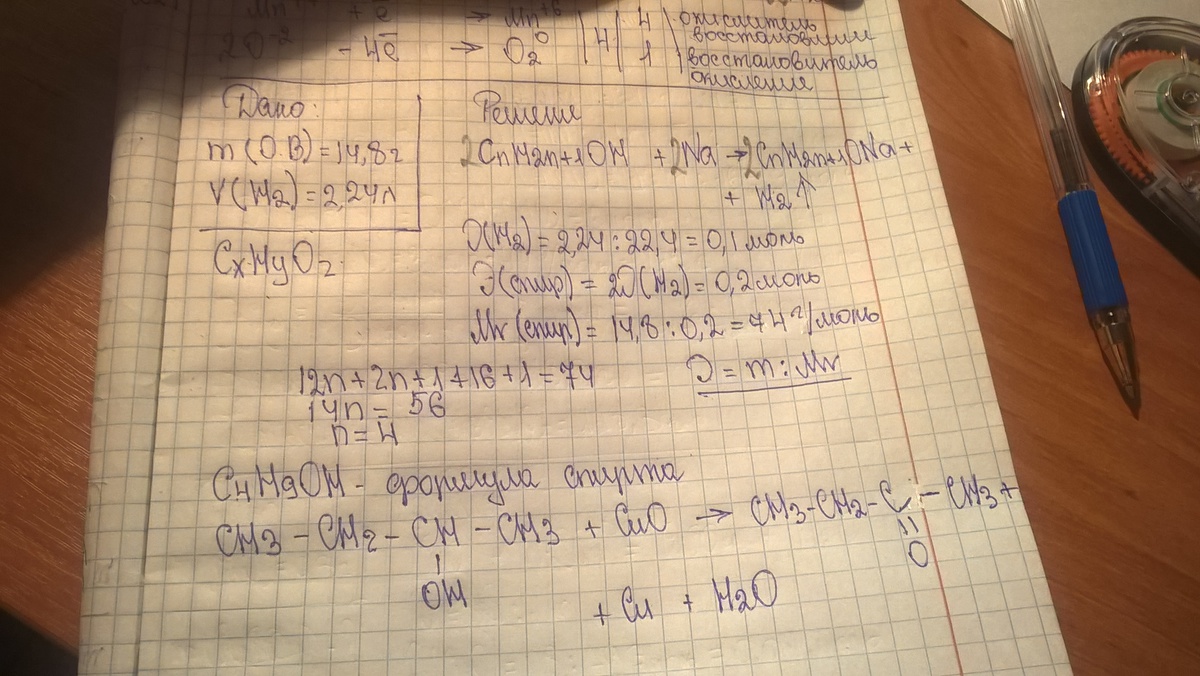 + e → Mn+6 | | 4 | окислитель
восстановл
2O-2 - 4e → O2 0 | 4 | 1 | восстановитель
окисление
Дано:
m(O.B)=14,8г
V(H2)=2,24л
CxHyO2
Решение
2CnH2n+1OH + 2Na → 2CnH2n+1ONa +
+ H2↑
Э(H2) = 2,24 : 22,4 = 0,1 моль
Э(спир) = 2Э(H2) = 0,2 моль
Mr(спир) = 14,8 : 0,2 = 74 г/моль
12n+2n+1+16+1=74
14n = 56
n=4
Э = m : Mr
C4H9OH - формула спирта
CH3 - CH2 - CH - CH3 + CuO → CH3-CH2-C - CH3 +
OH
O
+ Cu + H2O